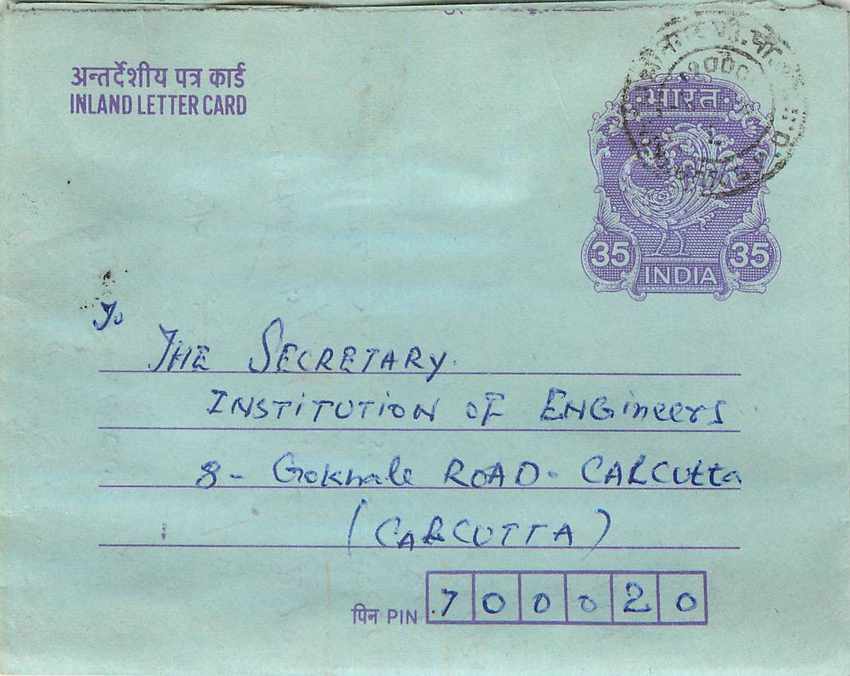 अन्तर्देशीय पत्र कार्ड
INLAND LETTER CARD
भारत
35 35
INDIA
To
THE SECRETARY.
INSTITUTION OF ENGineers
8 - Gokhale ROAD - CALCUtta
(CALCUTTA)
पिन PIN 700020